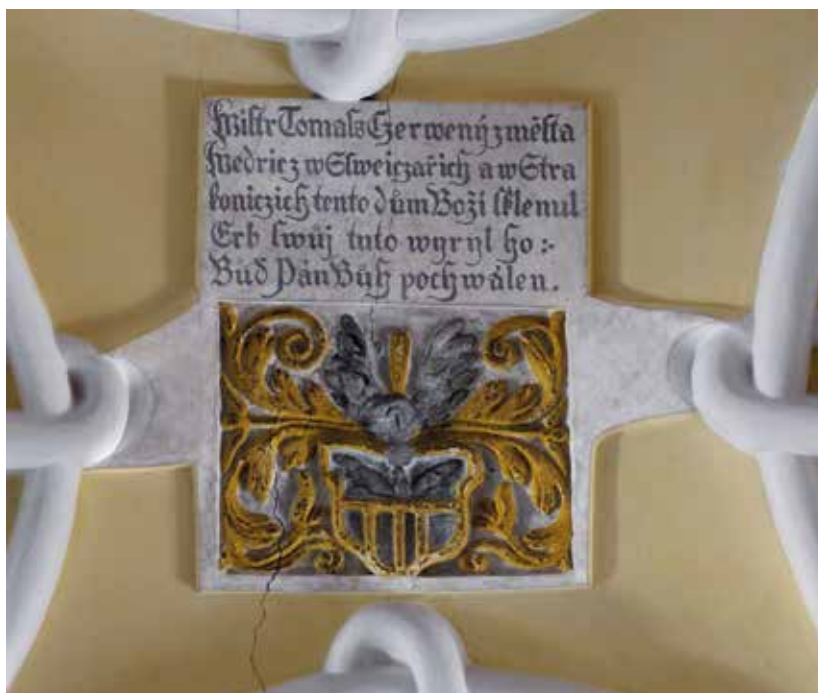 Mistr Tomass Czerwený z města
Medricz w Ssweiczařich a w Stra
koniczich tento dům Boži sklenul
Erb swůj tuto wyryl ho:-
Búď Pán Bůh pochwálen.